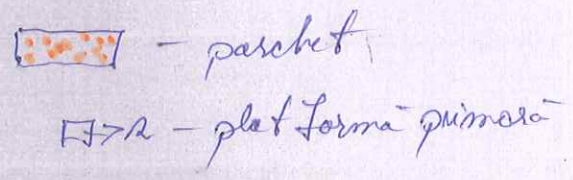 - parchet
- platformă primară